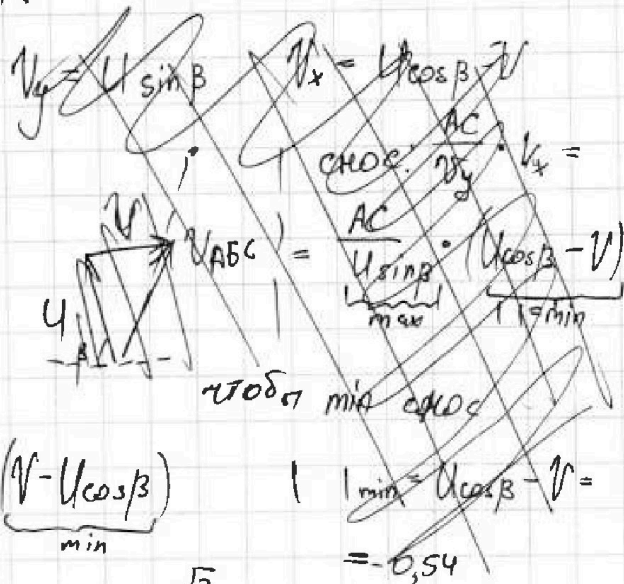 Vy = U sinβ    Vx = U cosβ - V
снос: AC/Vy · Vx =
= AC/(U sinβ) · (U cosβ - V)
max    | | = min
V
VАБС
U
β
чтобы min снос
(V - U cosβ)    | |min = U cosβ - V =
min
= -0,54